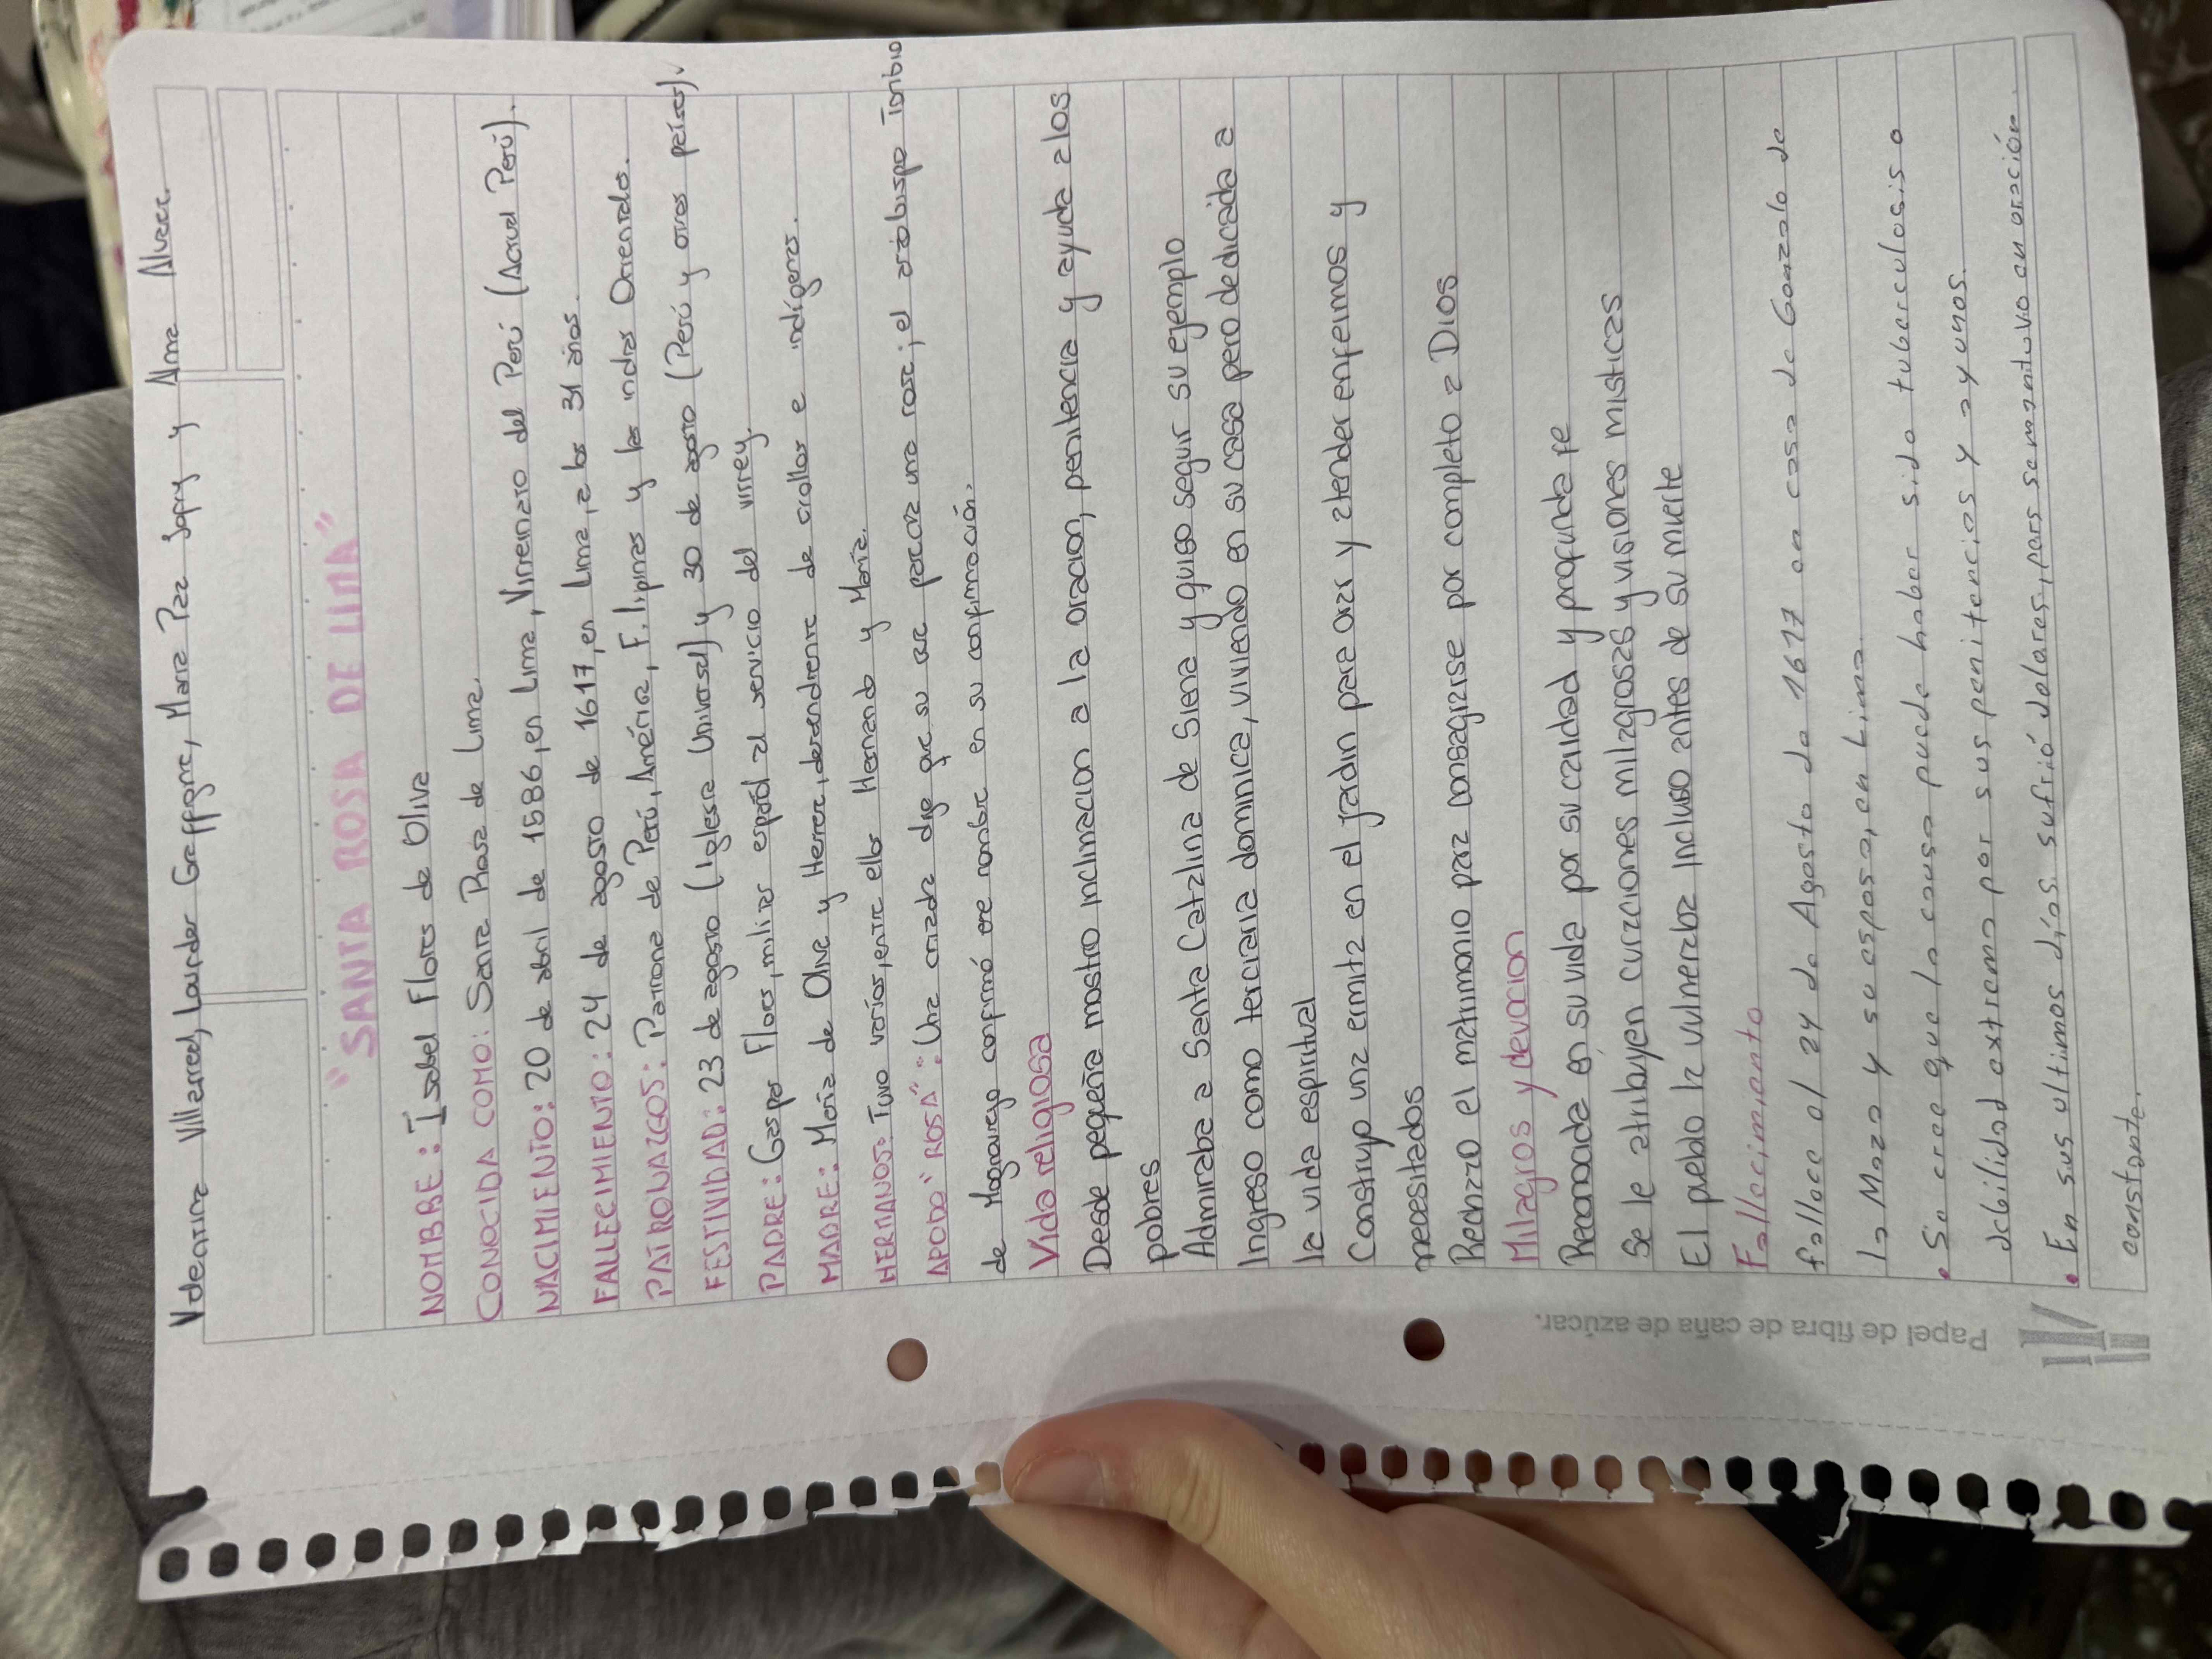 Valentina Villarreal, Lourdes Gaffgne, Maria Paz Sapry y Alma Alvarez.
"SANTA ROSA DE LIMA"
NOMBRE: Isabel Flores de Oliva
CONOCIDA COMO: Santa Rosa de Lima.
NACIMIENTO: 20 de abril de 1586, en Lima, Virreinato del Perú (Actual Perú).
FALLECIMIENTO: 24 de agosto de 1617, en Lima, a los 31 años.
PATRONAZGOS: Patrona de Perú, América, Filipinas y las indias Orientales.
FESTIVIDAD: 23 de agosto (Iglesia Universal) y 30 de agosto (Perú y otros países).
PADRE: Gaspar Flores, militar español al servicio del virrey.
MADRE: María de Oliva y Herrera, descendiente de criollos e indígenas.
HERMANOS: Tuvo varios, entre ellos Hernando y María.
APODO "ROSA": Una criada dijo que su cara parecía una rosa; el arzobispo Toribio
de Mogrovejo confirmó ese nombre en su confirmación.
Vida religiosa
Desde pequeña mostro inclinacion a la oracion, penitencia y ayuda a los
pobres
Admiraba a Santa Catalina de Siena y quiso seguir su ejemplo
Ingreso como terciaria dominica, viviendo en su casa pero dedicada a
la vida espiritual
Construyo una ermita en el jardin para orar y atender enfermos y
necesitados
Rechazo el matrimonio para consagrarse por completo a Dios
Milagros y devocion
Reconocida en su vida por su caridad y profunda fe
Se le atribuyen curaciones milagrosas y visiones misticas
El pueblo la vulneraba incluso antes de su muerte
Fallecimiento
fallece el 24 de Agosto de 1617 en casa de Gonzalo de
la Maza y su esposa, en Lima.
• Se cree que la causa puede haber sido tuberculosis o
debilidad extrema por sus penitencias y ayunos.
• En sus ultimos días sufrió dolores, pero se mantuvo en oración
constante.
Papel de fibra de caña de azúcar.